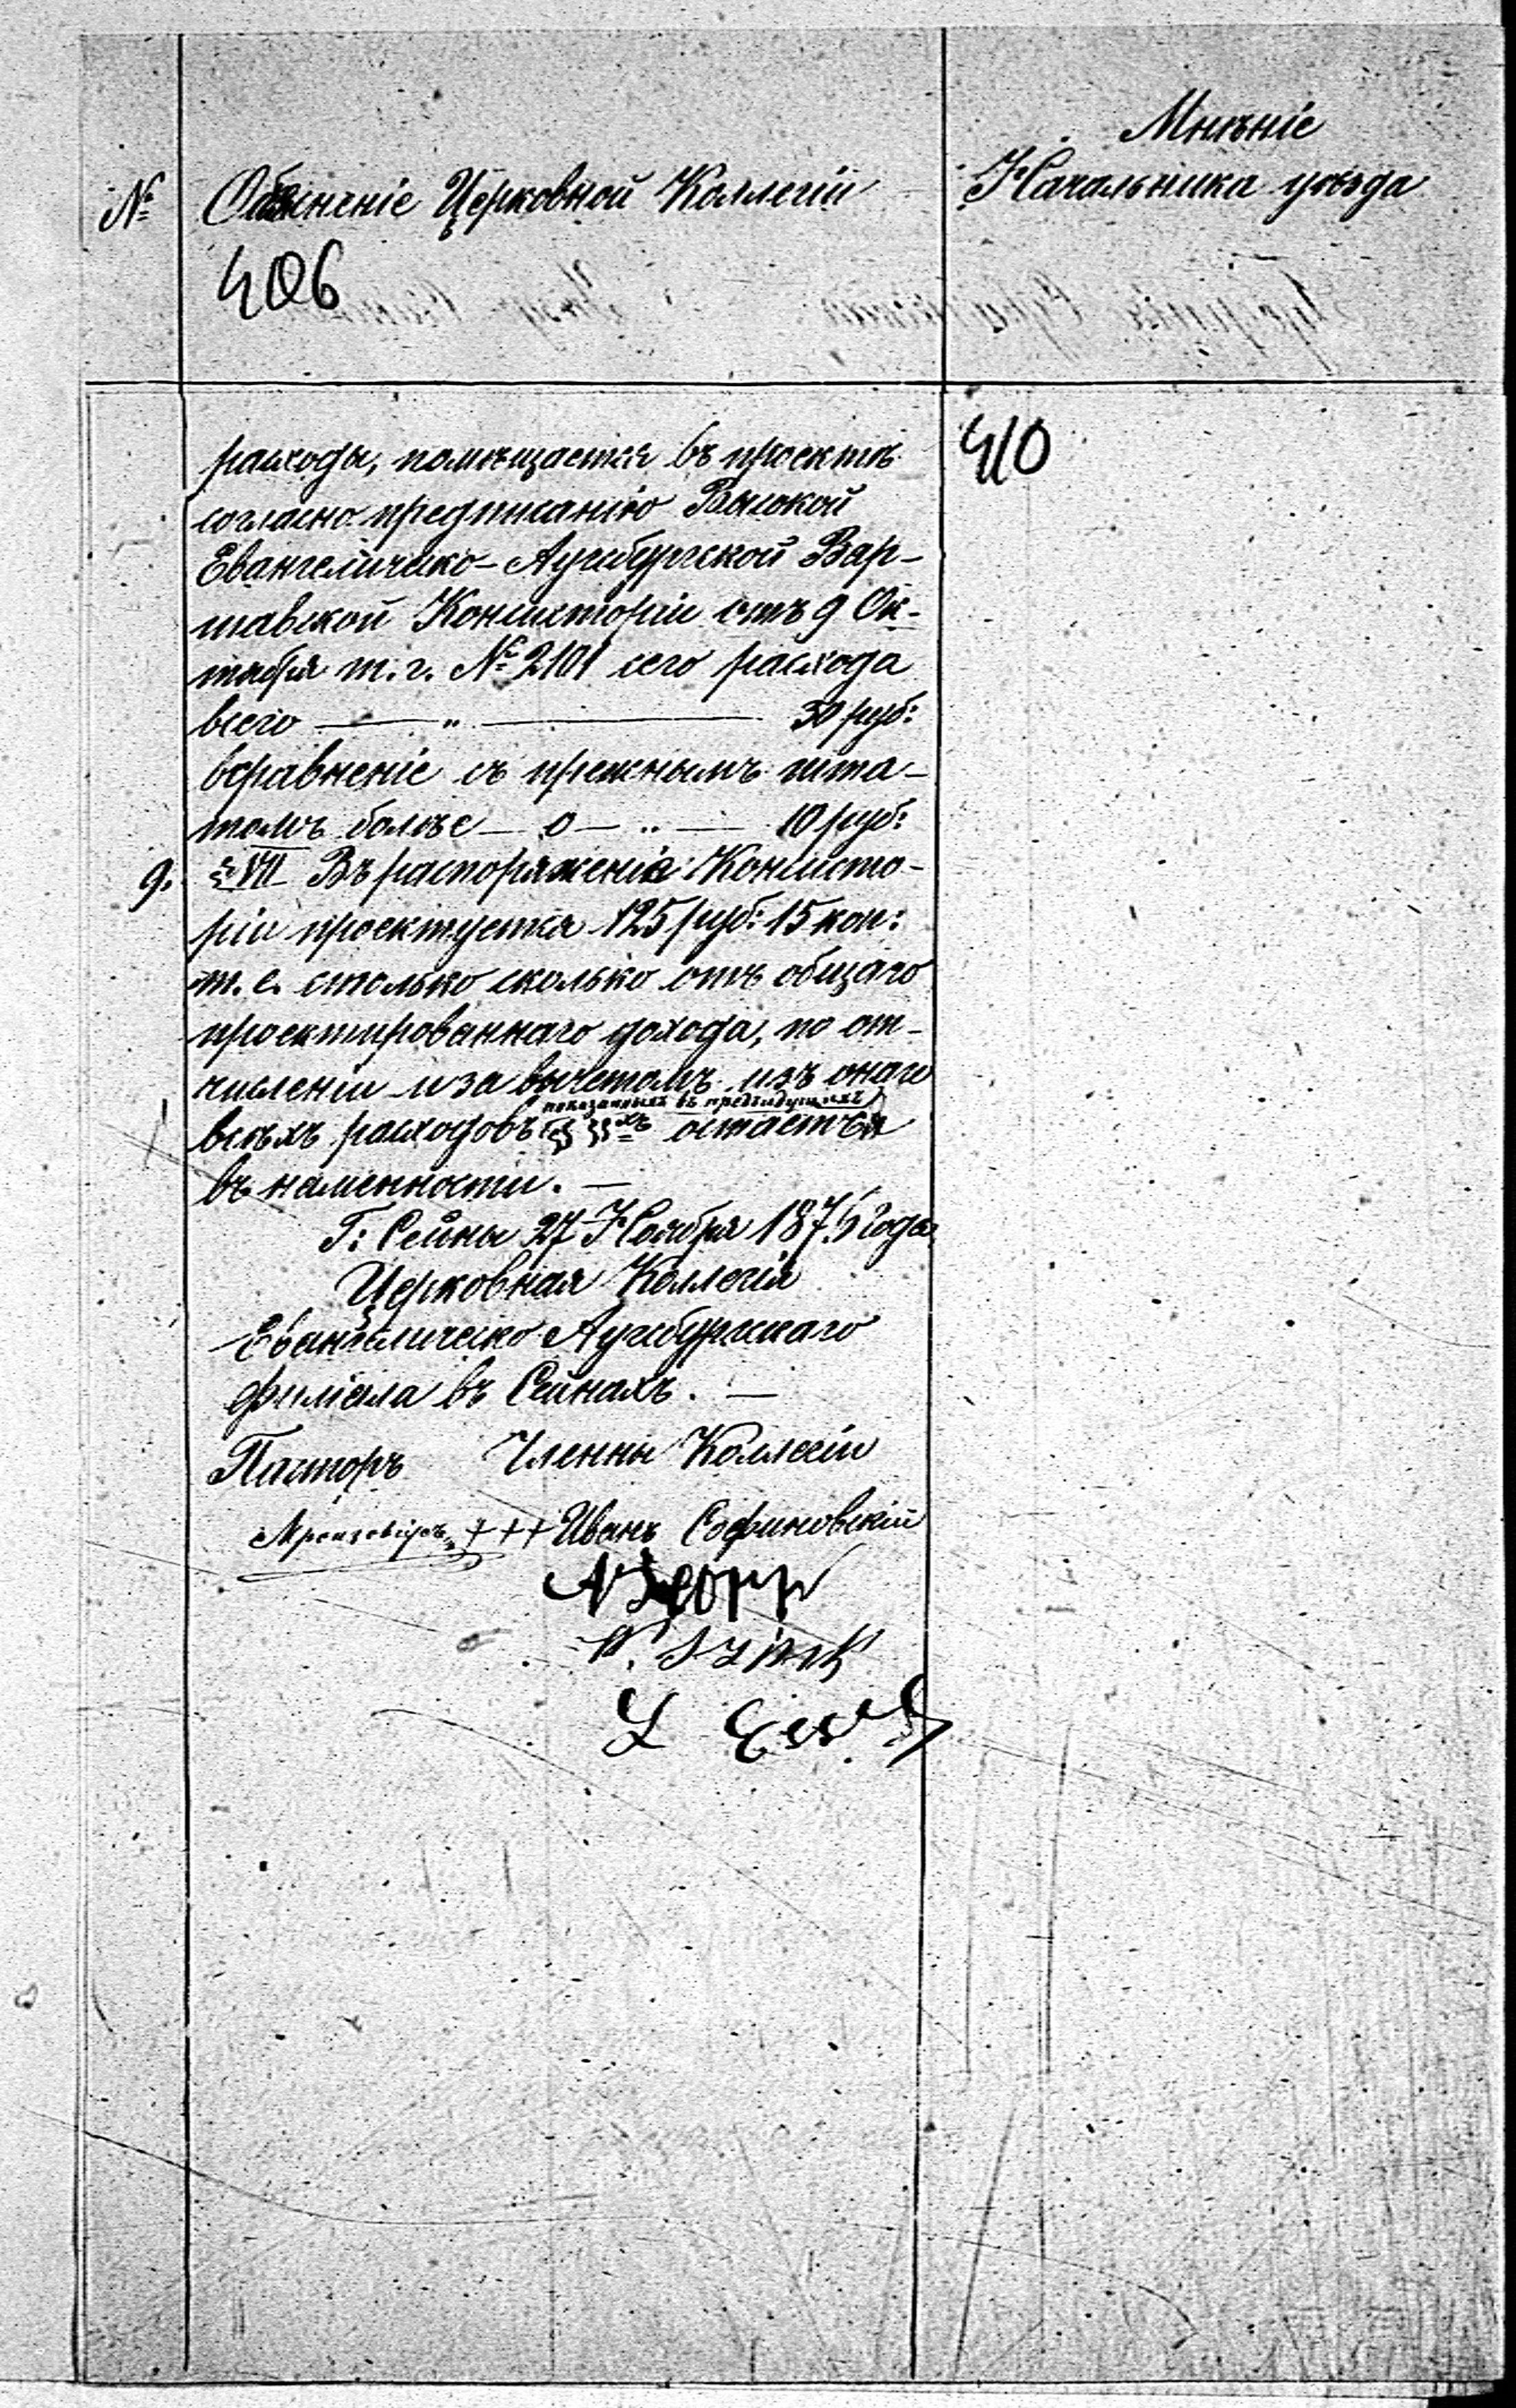 Мнѣніе
№ Объясненіе Церковной Коллегіи Начальника уѣзда
406
410
расходы, помѣщается въ проектѣ
согласно предписанію Высокой
Евангелическо-Аугсбургской Вар-
шавской Консисторіи отъ 9 Ок-
тября т. г. № 2101 сего расхода
всего — „ — 30 руб:
всравненіе съ прежнымъ шта-
томъ болѣе — 0 — „ — 10 руб:
9. § VII Въ распоряженіе Консисто-
ріи проектуется 125 руб: 15 коп:
т. е. столько сколько отъ общаго
проектированнаго дохода, по от-
численіи и за вычетомъ изъ онаго
показанныхъ въ предъидущихъ
всѣхъ расходовъ §§хъ остается
въ наменности. —
Г: Сейны 27 Ноября 1875 года
Церковная Коллегія
Евангелическо Аугсбургскаго
филіала въ Сейнахъ. —
Пасторъ Членны Коллегіи
+++ Иванъ Софиновскій